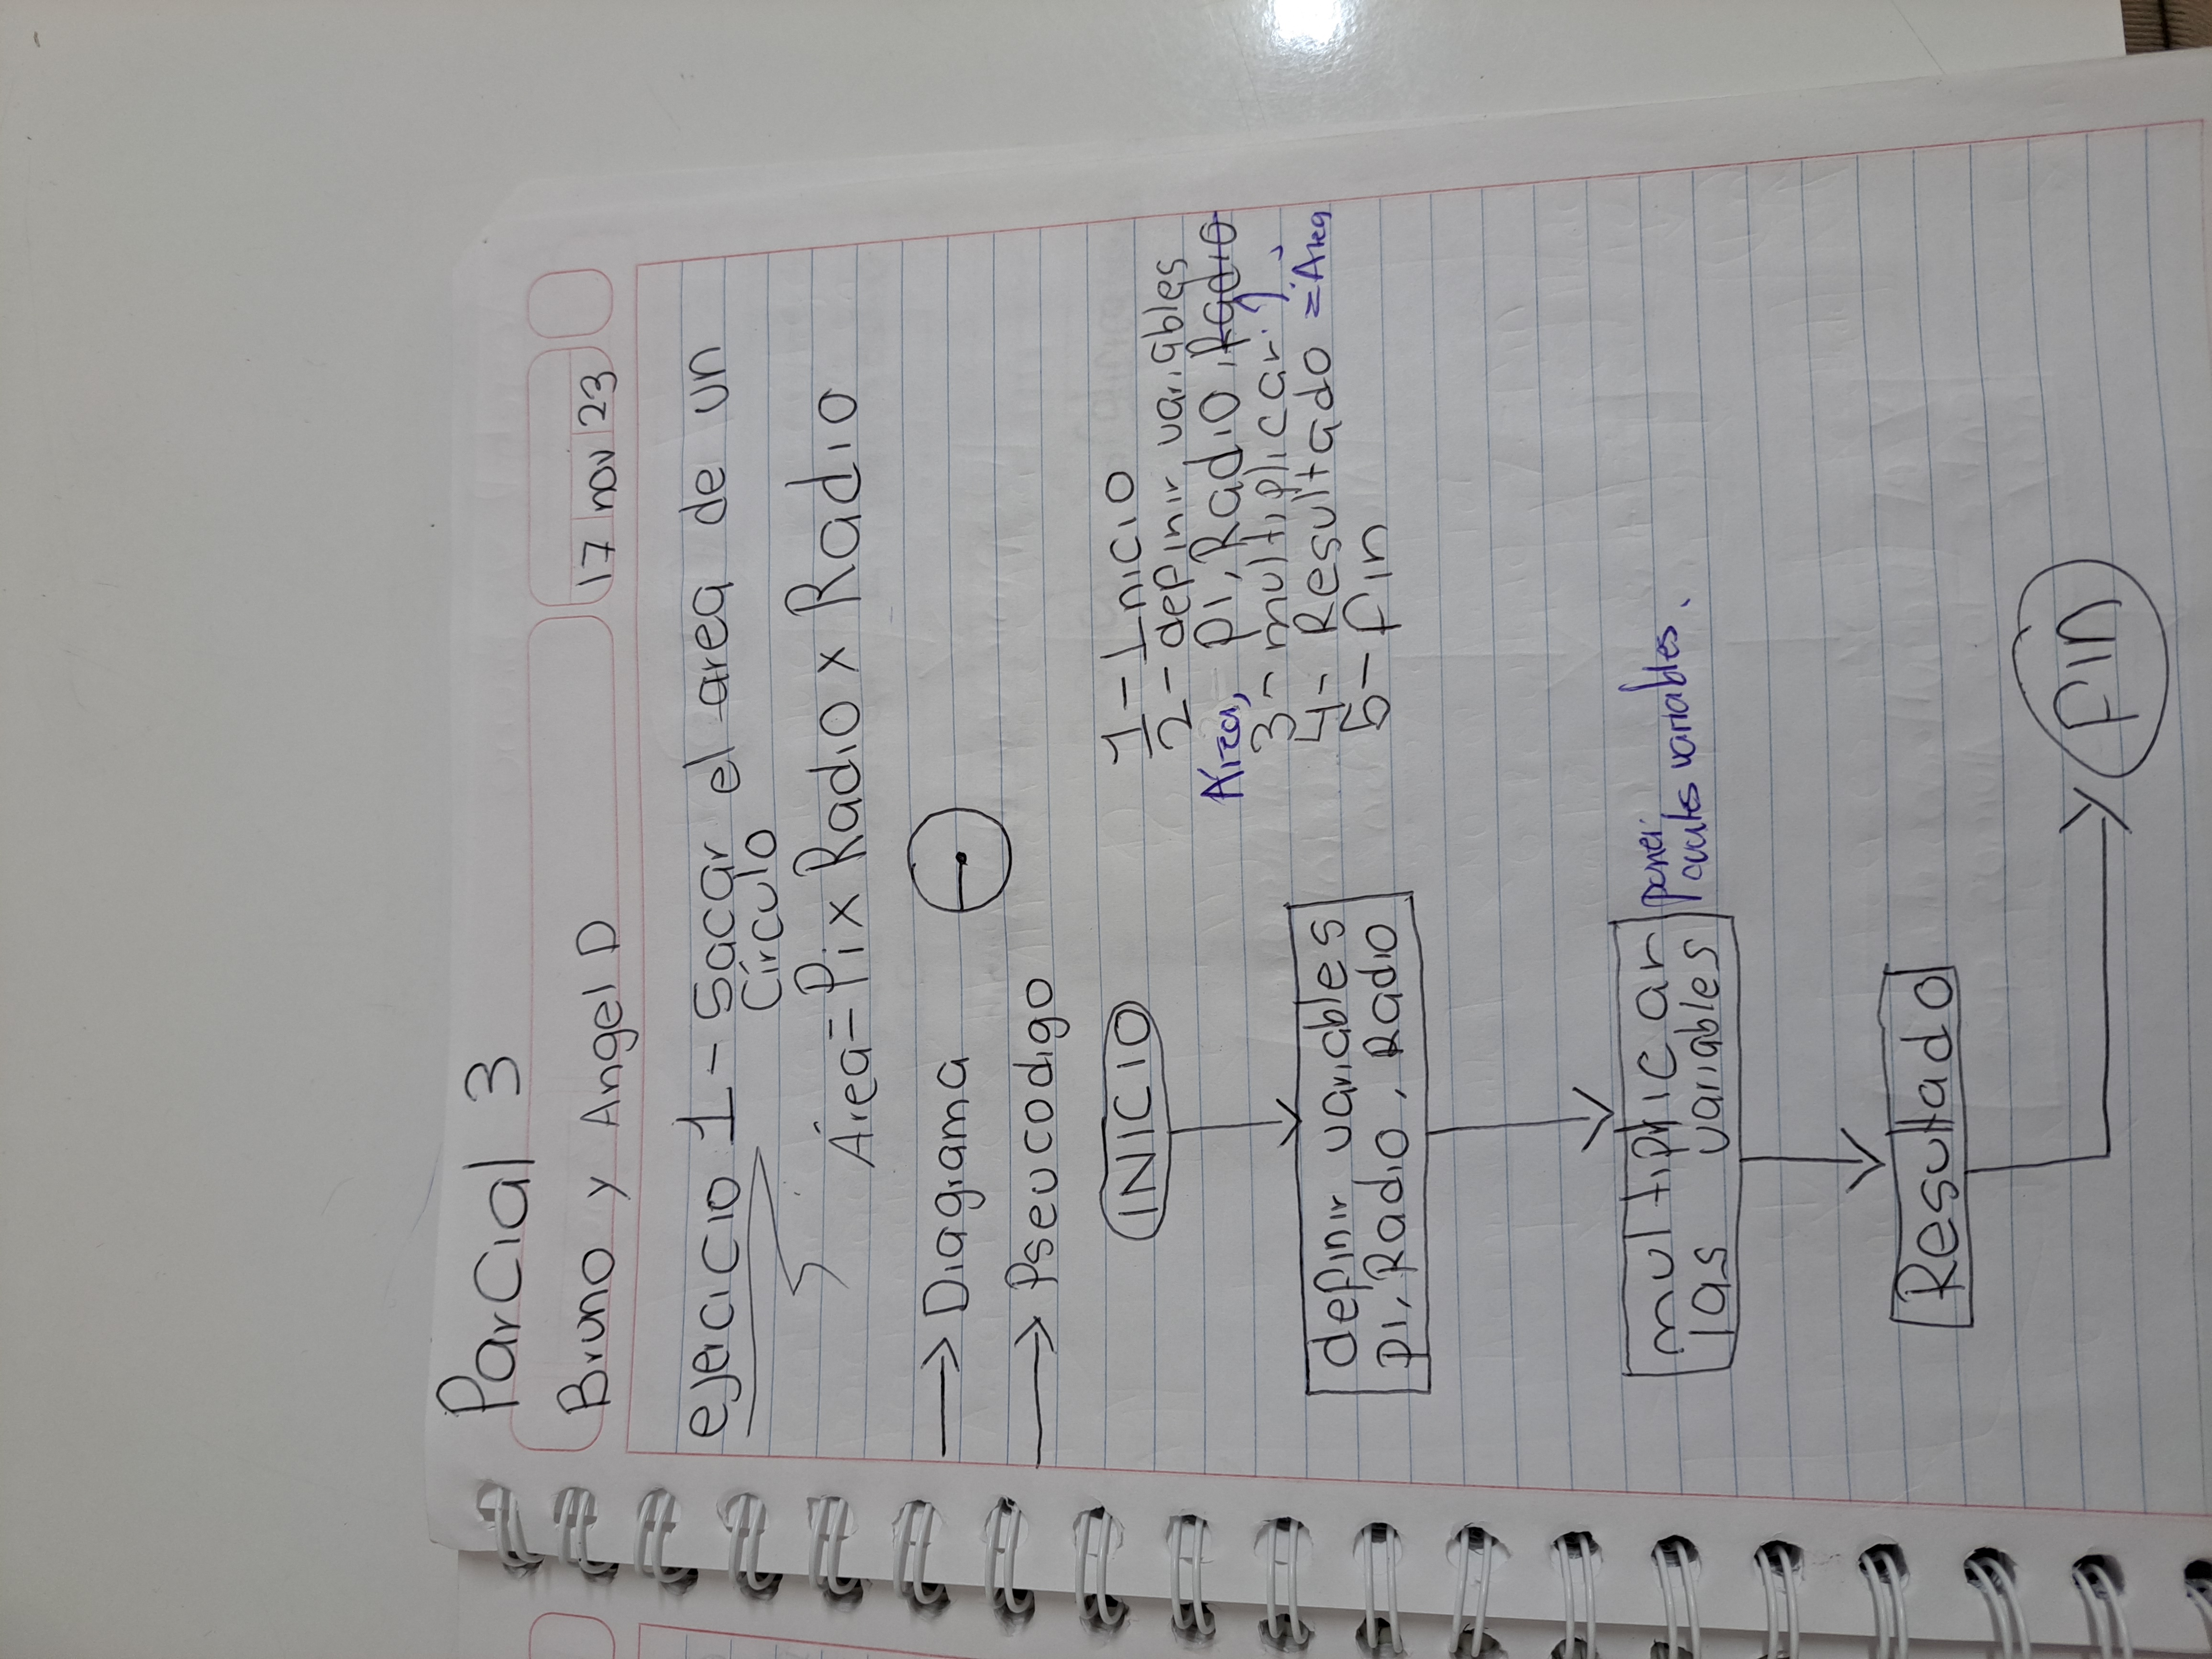 Parcial 3
Bruno y Angel D
17 nov 23
ejercicio 1 - Sacar el area de un
Círculo
Área = Pi x Radio x Radio
→ Diagrama
→ Pseucodigo
INICIO
definir variables
pi, Radio, Radio
multiplicar
las variables
poner
cuales variables.
Resultado
Fin
1 - Inicio
2 - definir variables
Área, pi, Radio, Radio
3 - multiplicar
4 - Resultado = Área
5 - fin